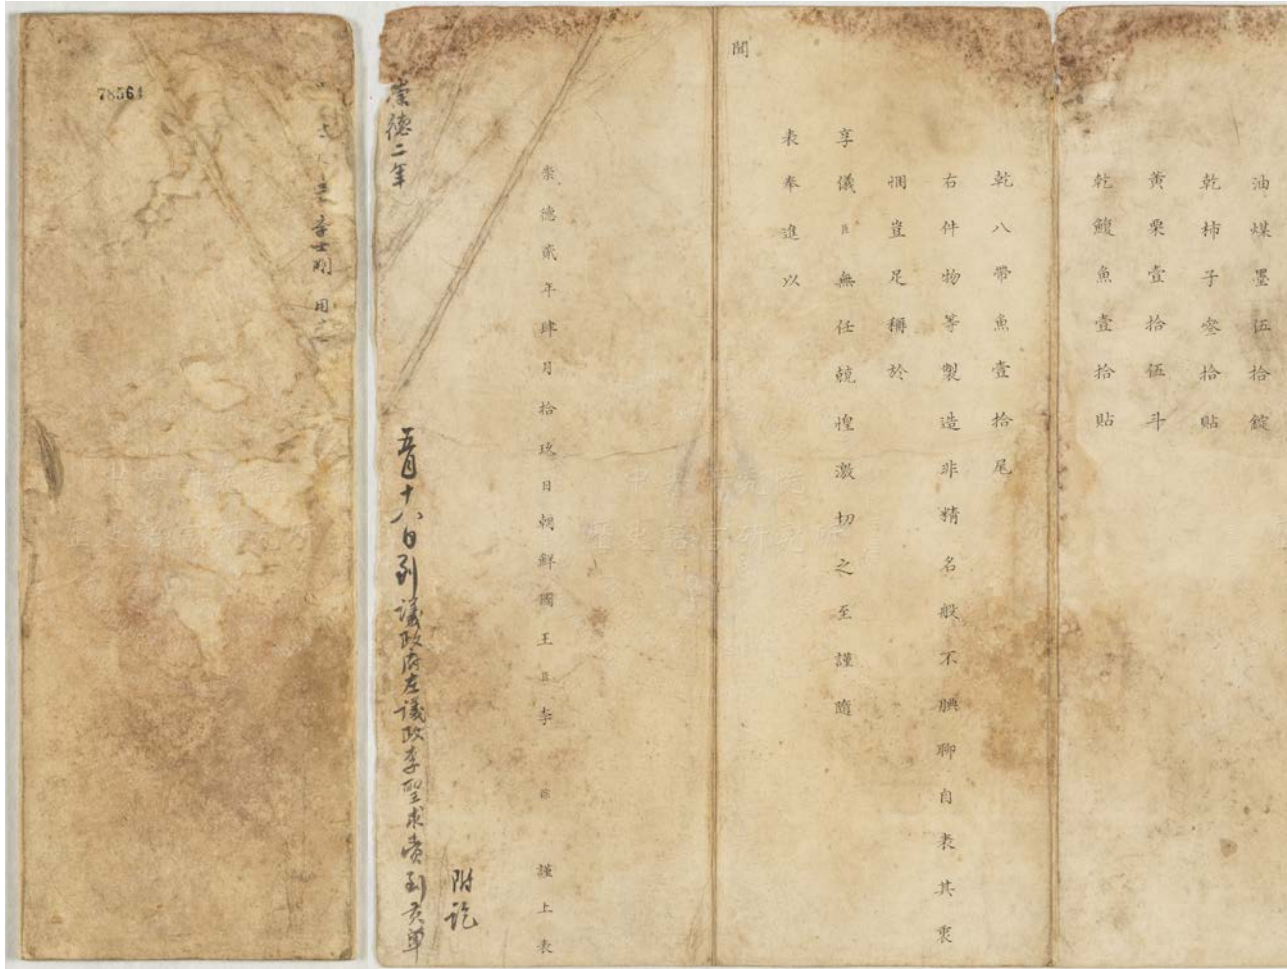 油煤墨伍拾錠
乾柿子叄拾貼
黃栗壹拾伍斗
乾鰒魚壹拾貼
乾八帶魚壹拾尾
右件物等製造非精名般不腆聊自表其衷
悃豈足稱於
享儀臣無任兢惶激切之至謹隨
表奉進以
聞
崇德貳年肆月拾玖日朝鮮國王臣李倧謹上表
附訖
崇德二年
五月十八日到議政府左議政李聖求賫到貢單
李士剛
78564